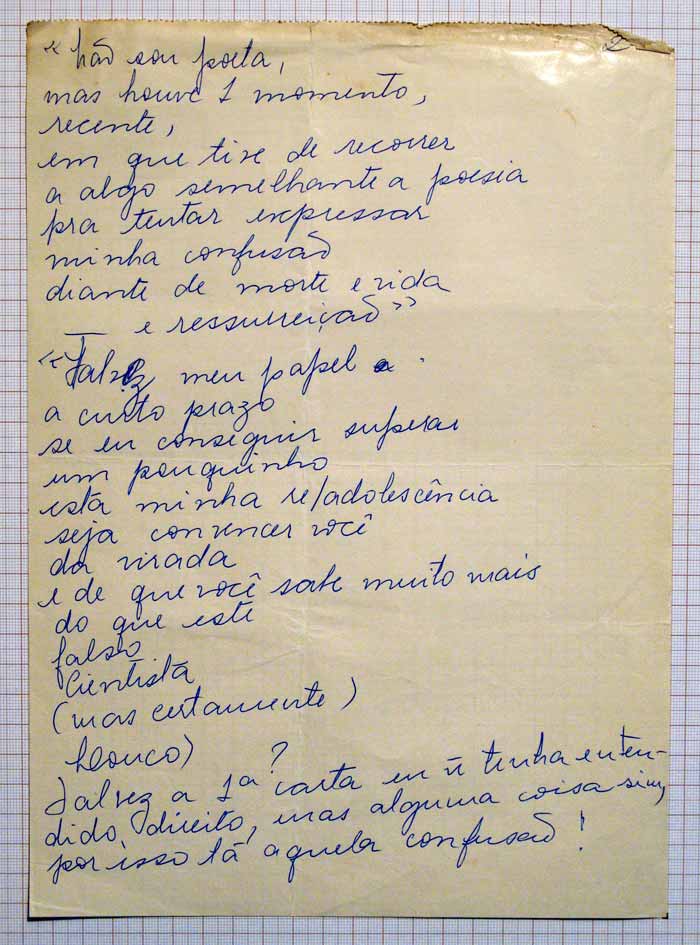 2
« Não sou poeta,
mas houve 1 momento,
recente,
em que tive de recorrer
a algo semelhante a poesia
pra tentar expressar
minha confusão
diante de morte e vida
— e ressurreição »
« Talvez meu papel a
a curto prazo
se eu conseguir superar
um pouquinho
esta minha re/adolescência
seja convencer você
da virada
e de que você sabe muito mais
do que este
falso
Cientista
(mas certamente)
louco) ?
Talvez a 1ª carta eu ñ tenha enten-
dido, direito, mas alguma coisa sim,
por isso tá aquela confusão!